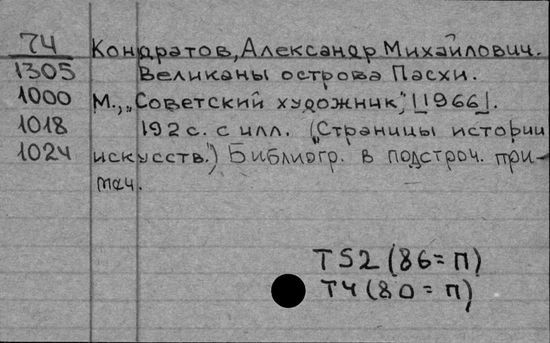 74 Кондратов, Александр Михайлович.
1305 Великаны острова Пасхи.
1000 М., „Советский художник", [1966].
1018 192 с. с илл. („Страницы истории
1024 искусств.") Библиогр. в подстроч. при-
меч.
Т52 (86=П)
Т4 (80=П)